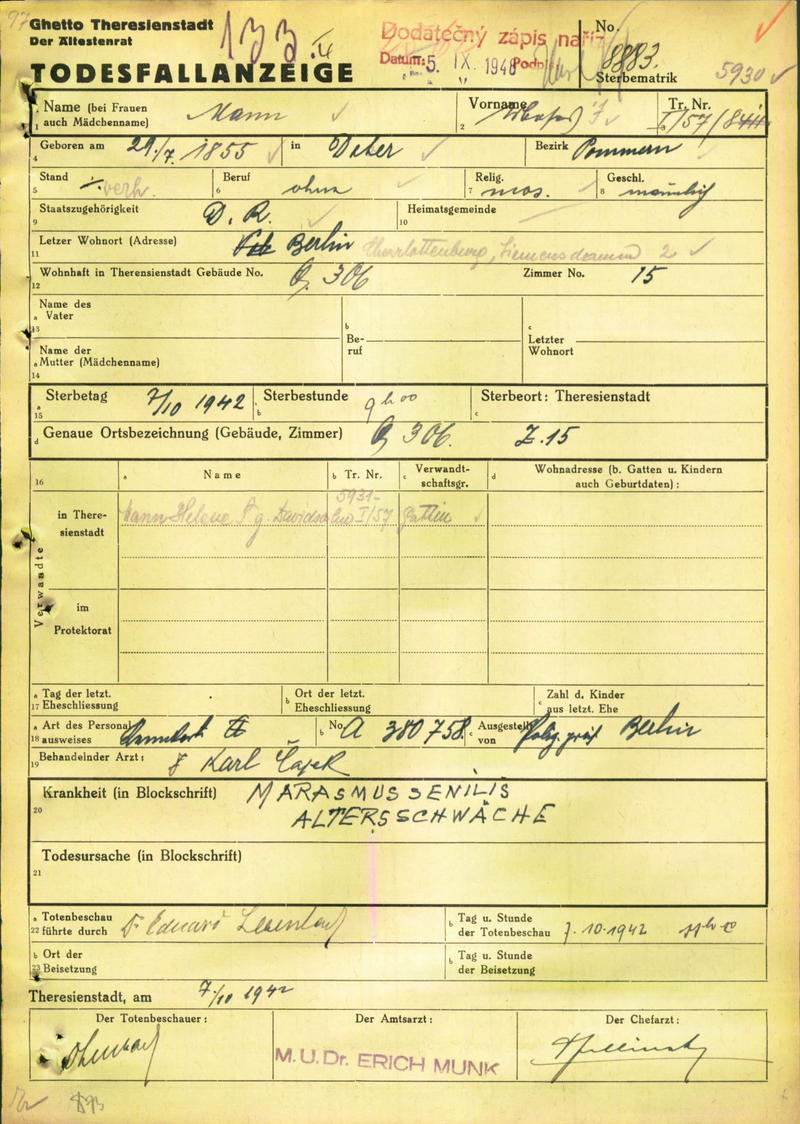 Ghetto Theresienstadt
Der Ältestenrat
TODESFALLANZEIGE
133
Dodatečný zápis naří-
Datum: 5. IX. 1948 Podpis
No. 8883.
Sterbematrik
5930
Name (bei Frauen auch Mädchenname) Mann
1
Vorname
2
Tr. Nr. I/57/844
Geboren am 29./7. 1855 in Daber Bezirk Pommern
4
Stand verh. Beruf ohne Relig. mos. Geschl. männlich
5 6 7 8
Staatszugehörigkeit D. R. Heimatsgemeinde
9 10
Letzer Wohnort (Adresse) Berlin Charlottenburg, Siemensdamm 2
11
Wohnhaft in Theresienstadt Gebäude No. Q 306 Zimmer No. 15
12
Name des Vater
a
13
b Be-ruf
c Letzter Wohnort
Name der Mutter (Mädchenname)
a
14
Sterbetag 7/10 1942 Sterbestunde 9 h 00 Sterbeort: Theresienstadt
a 15 b c
d Genaue Ortsbezeichnung (Gebäude, Zimmer) Q 306. Z. 15
16 a Name b Tr. Nr. c Verwandt-schaftsgr. d Wohnadresse (b. Gatten u. Kindern auch Geburtdaten):
Verwandte
in There-sienstadt Mann Helene g. 5931- I/57 Gattin
im Protektorat
a 17 Tag der letzt. Eheschliessung b Ort der letzt. Eheschliessung c Zahl d. Kinder aus letzt. Ehe
a 18 Art des Personal ausweises b No A 380758 c Ausgestellt von Berlin
19 Behandelnder Arzt: Karl
Krankheit (in Blockschrift) MARASMUS SENILIS
20 ALTERSSCHWÄCHE
Todesursache (in Blockschrift)
21
a 22 Totenbeschau führte durch Dr Eduard b Tag u. Stunde der Totenbeschau 7.10.1942
b 23 Ort der Beisetzung b Tag u. Stunde der Beisetzung
Theresienstadt, am 7/10 1942
Der Totenbeschauer: Der Amtsarzt: Der Chefarzt:
M.U.Dr. ERICH MUNK